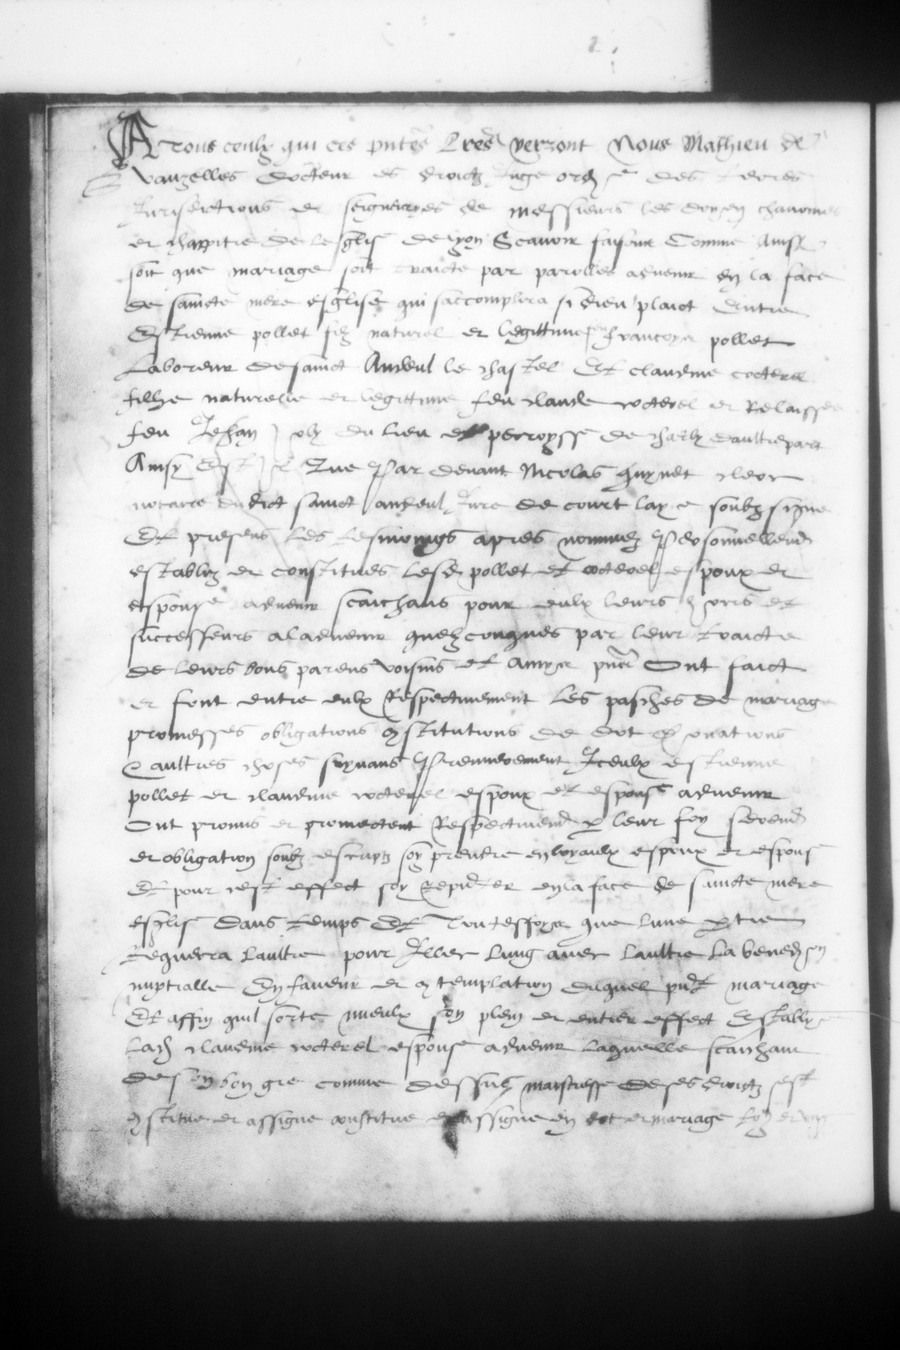 A Tous ceulx qui ces pntes lres verront Nous Mathieu de
Vauzelles docteur es droictz Juge ordre des terres
Jurisdictions et seigneuryes de messieurs les doyen chanoines
et chappitre de leglise de lyon Scavoir faisons Comme Ainsy
soit que mariage soit traicte par parolles advenir en la face
de saincte mere esglise qui saccomplira si dieu plaict Entre
Estienne pollet filz naturel et legittime francoys pollet
Laboreur de sainct Andeul le chastel Et claudine coterel
fillie naturelle et legittime feu claude coterel et Relaissee
feu Jehan du lieu et perroysse de daultrepart
Ainsy Est que Par devant Nicolas guynet clerc
notaire dudict sainct andeul Jure de court laye soubz signe
Et presens les tesmoings apres nommez Personnellemt
establyz et constitues lesd pollet et coterel espoux et
espouse advenir scaichans pour eulx leurs hoirs et
successeurs aladvenir quelzconques par leur traicte
de leurs bons parens voisins et amys pnts Ont faict
et font entre eulx Respectivement les pasches de mariage
promesses obligations constitutions de dot donations
& aultres choses suyvans Premierement Iceulx estienne
pollet et claudine coterel espoux et espouse advenir
Ont promis et promectent Respectivemt p leur foy seremt
et obligation soubz escriptz soy prendre en loyaulx espoux et espouse
Et pour cest effect soy en la face de saincte mere
esglise dans temps Et Toutesfoys que lune partie
Requerra laultre pour Iller lung avec laultre la benedon
nuptialle En faveur et contemplation duquel pnt mariage
Et affin quil sorte mieulx son plein et entier effect Establye
lad claudine coterel espouse advenir laquelle scaichant
de son bon gre comme dessus maistresse de ses droictz sest
constitue et assigne constitue et assigne en dot et mariage